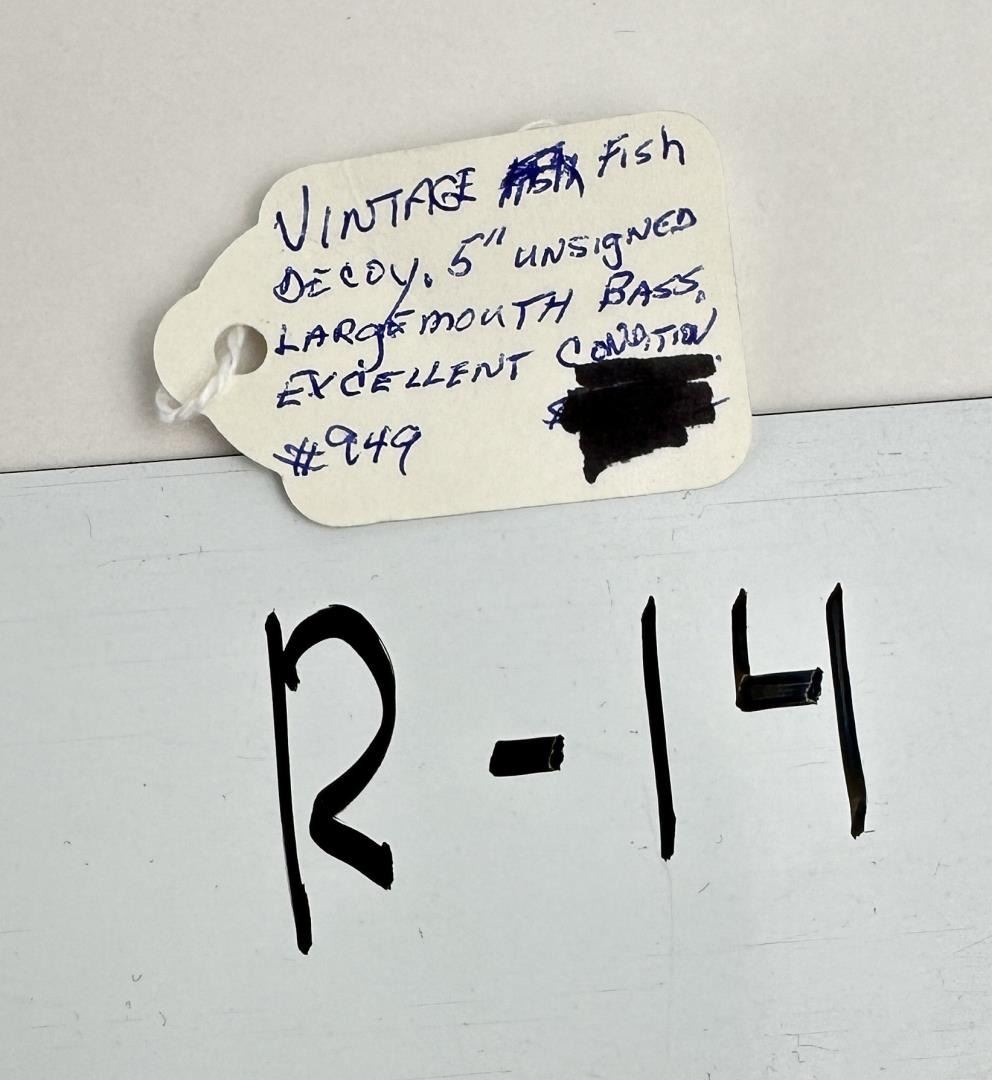 VINTAGE Fish
DECOY. 5" UNSIGNED
LARGEMOUTH BASS.
EXCELLENT CONDITION.
#949 $
R-14